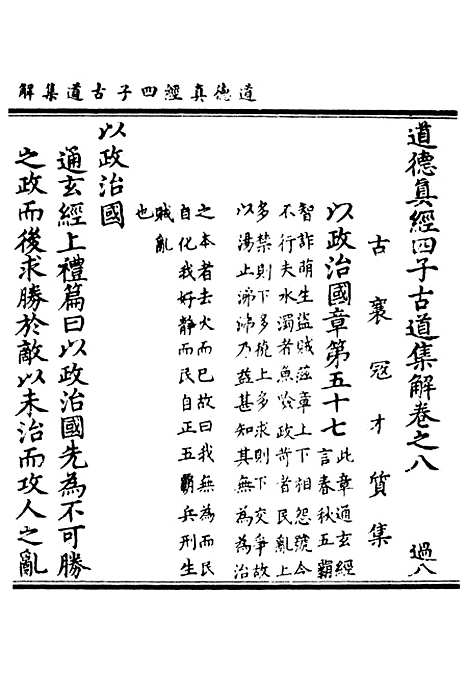 道德真經四子古道集解
道德真經四子古道集解卷之八 過八
古襄寇才質集
以政治國章第五十七
此章通玄經
言春秋五霸
智詐萌生盜賊滋章上下相怨號令
不行夫水濁者魚噞政苛者民亂上
多禁則下多詭上多求則下交爭故
以湯止沸沸乃益甚知其無為為治
之本者去火而已故曰我無為而民
自化我好靜而民自正五霸兵刑生
賊亂
也
以政治國
通玄經上禮篇曰以政治國先為不可勝
之政而後求勝於敵以未治而攻人之亂